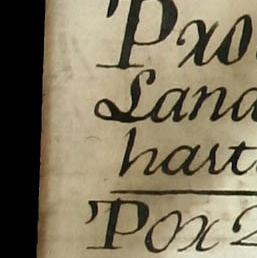 Pro
Land
hart
Pox 2